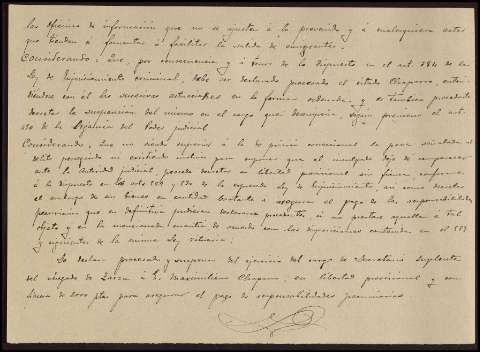 las oficinas de información que no se ajusten á lo prevenido y á cualesquiera actos
que tiendan á fomentar ó facilitar la salida de emigrantes.
Considerando: Que, por consecuencia y á tenor de lo dispuesto en el art. 384 de la
Ley de Enjuiciamiento criminal, debe ser declarado procesado el citado Chaparro, enten-
diéndose con él las sucesivas actuaciones en la forma ordenada, y es también procedente
decretar la suspensión del mismo en el cargo que desempeña, según previene el art.
de la Orgánica del Poder judicial
Considerando, Que no siendo superior á la de prisión correccional la pena señalada al
delito perseguido ni existiendo motivo para suponer que el inculpado deje de comparecer
ante la autoridad judicial, procede decretar su libertad provisional sin fianza, conforme
á lo dispuesto en los arts 529 y 530 de la expresada Ley de Enjuiciamiento, así como decretar
el embargo de sus bienes en cantidad bastante á asegurar el pago de las responsabilidades
pecuniarias que en definitiva pudieran declararse procedentes, si no prestare aquella á tal
objeto y en la mencionada cuantía de acuerdo con las disposiciones contenidas en el 589
y siguientes de la misma Ley rituaria;
Se declara procesado y suspenso del ejercicio del cargo de Secretario suplente
del Juzgado de á D. Maximiliano Chaparro, en libertad provisional y con
fianza de 2000 ptas para asegurar el pago de responsabilidades pecuniarias